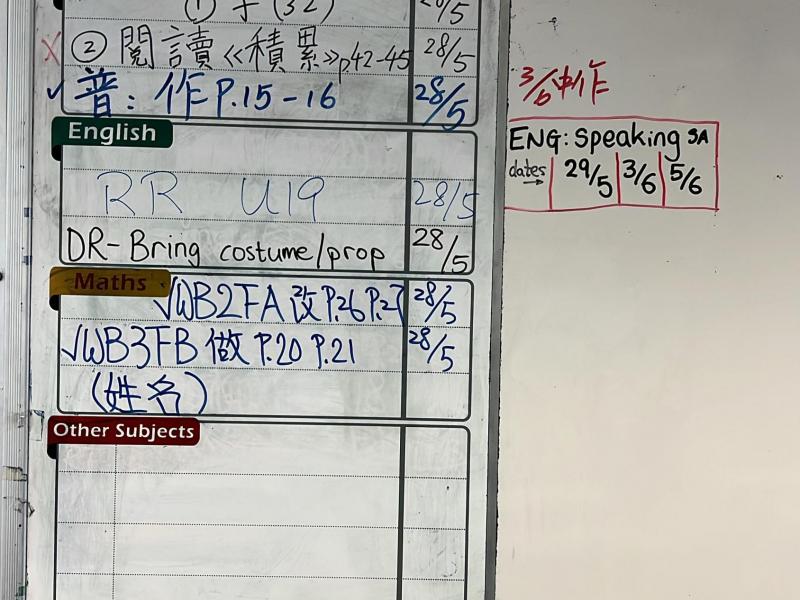 ① 字 (32) 28/5
② 閱讀《積累》p42-45 28/5
✓ 普: 作 P.15-16 28/5
English
RR U19 28/5
DR-Bring costume/prop 28/5
Maths
√WB2FA 改 P.26 P.27 28/5
√WB3FB 做 P.20 P.21 28/5
(姓名)
Other Subjects
3/6 中作
ENG: Speaking SA
dates → 29/5 3/6 5/6